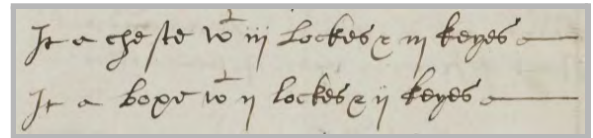 It a cheste wt iij lockes & iij keyes
It a boxe wt ij lockes & ij keyes